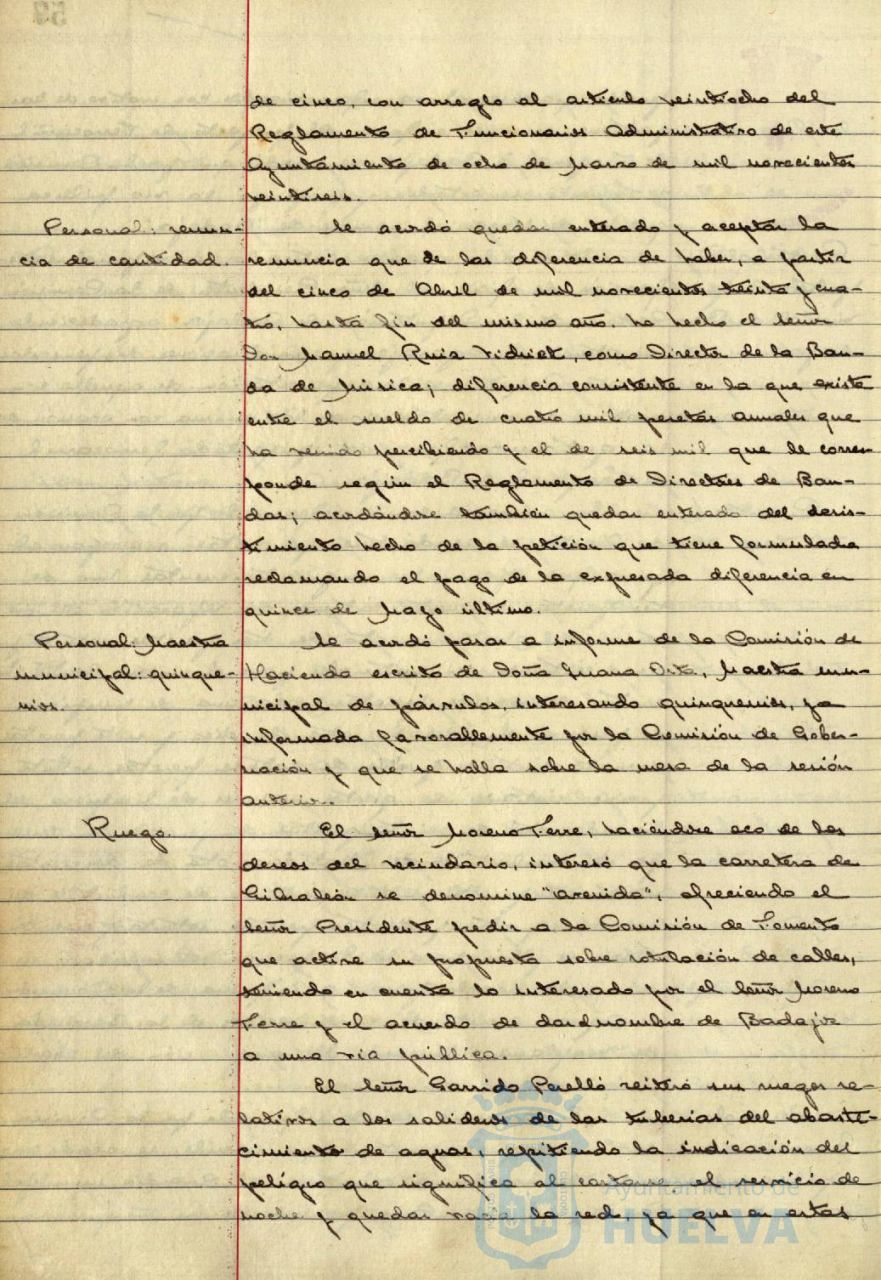 de cinco, con arreglo al artículo veintiocho del
Reglamento de Funcionarios Administrativo de este
Ayuntamiento de ocho de Marzo de mil novecientos
veintiseis.
Personal: renun-
cia de cantidad.
Se acordó quedar enterado y aceptar la
renuncia que de las diferencia de haber, a partir
del cinco de Abril de mil novecientos treinta y cua-
tro, hasta fin del mismo año, ha hecho el Señor
Don Manuel Ruiz Vidriet, como Director de la Ban-
da de Música; diferencia consistente en la que existe
entre el sueldo de cuatro mil pesetas anuales que
ha venido percibiendo y el de seis mil que le corres-
ponde según el Reglamento de Directores de Ban-
das; acordándose también quedar enterado del desis-
timiento hecho de la petición que tiene formulada
reclamando el pago de la expresada diferencia en
quince de Mayo último.
Personal: Maestra
municipal: quinque-
nios.
Se acordó pasar a informe de la Comisión de
Hacienda escrito de Doña Juana Orta, Maestra mu-
nicipal de párvulos, interesando quinquenios, ya
informada favorablemente por la Comisión de Gober-
nación y que se halla sobre la mesa de la sesión
anterior.
Ruego.
El Señor Moreno Ferre, haciéndose eco de los
deseos del vecindario, interesó que la carretera de
Gibraleón se denomine "avenida", ofreciendo el
Señor Presidente pedir a la Comisión de Fomento
que active su propuesta sobre rotulación de calles,
teniendo en cuenta lo interesado por el Señor Moreno
Ferre y el acuerdo de dar el nombre de Badajoz
a una vía pública.
El Señor Garrido Perelló reiteró sus ruegos re-
lativos a los salideros de las tuberías del abaste-
cimiento de aguas, repitiendo la indicación del
peligro que significa al cortarse el servicio de
noche y quedar vacía la red, ya que en estas
Ayuntamiento de
HUELVA